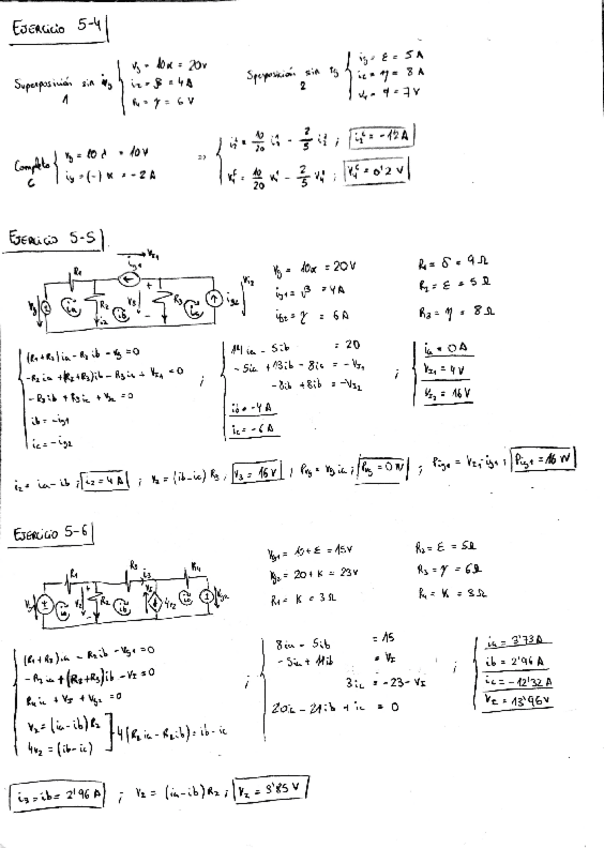 EJERCICIO 5-4
Superposición sin
1
Vg = 10α = 20V
i2 = β = 4A
V4 = γ = 6V
Superposición sin ig
2
ig = ε = 5A
i2 = η = 8A
V4 = 7V
Completo
C
Vg = 10 = 10V
ig = (-) K = -2A
=>
i2ᶜ = 10/20 i2¹ - 2/5 i2² ; i2ᶜ = -12A
V4ᶜ = 10/20 V4¹ - 2/5 V4² ; V4ᶜ = 0'2 V
EJERCICIO 5-5
VI1
R1
ig1
Vg
ia
R2
i2
ib
V3
R3
ic
ig2
VI2
Vg = 10α = 20V
ig1 = β = 4A
ig2 = γ = 6A
R1 = δ = 9Ω
R2 = ε = 5Ω
R3 = η = 8Ω
(R1+R2)ia - R2ib - Vg = 0
-R2ia + (R2+R3)ib - R3ic + VI1 = 0
-R3ib + R3ic + VI2 = 0
ib = -ig1
ic = -ig2
;
14ia - 5ib = 20
-5ia + 13ib - 8ic = -VI1
-8ib + 8ic = -VI2
ib = -4A
ic = -6A
;
ia = 0A
VI1 = 4V
VI2 = 16V
i2 = ia - ib ; i2 = 4A ; V3 = (ib-ic) R3 ; V3 = 16V ; PVg = Vg ia ; PVg = 0W ; Pig1 = VI1·ig1 ; Pig1 = 16W
EJERCICIO 5-6
R1
R3
i3
R4
ia
V2
R2
ib
VI
4V2
Vg2
Vg1 = 10+ε = 15V
Vg2 = 20+K = 23V
R1 = K = 3Ω
R2 = ε = 5Ω
R3 = γ = 6Ω
R4 = K = 3Ω
(R1+R2)ia - R2ib - Vg1 = 0
-R2ia + (R2+R3)ib - VI = 0
R4ic + VI + Vg2 = 0
V2 = (ia-ib)R2
4V2 = (ib-ic)
4(R2ia - R2ib) = ib - ic
;
8ia - 5ib = 15
-5ia + 11ib = VI
3ic = -23 - VI
20ia - 21ib + ic = 0
;
ia = 3'73A
ib = 2'96A
ic = -12'32A
VI = 13'96V
i3 = ib = 2'96A ; V2 = (ia-ib)R2 ; V2 = 3'85V